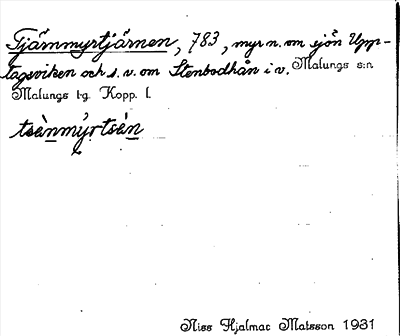 Tjärnmyrtjärnen, 783, myr n. om sjön Upp-
tagsviken och s. v. om Stenbodhån i v. Malungs s:n
Malungs tg. Kopp. l.
tsènmy̆r tsèn
Niss Hjalmar Matsson 1931